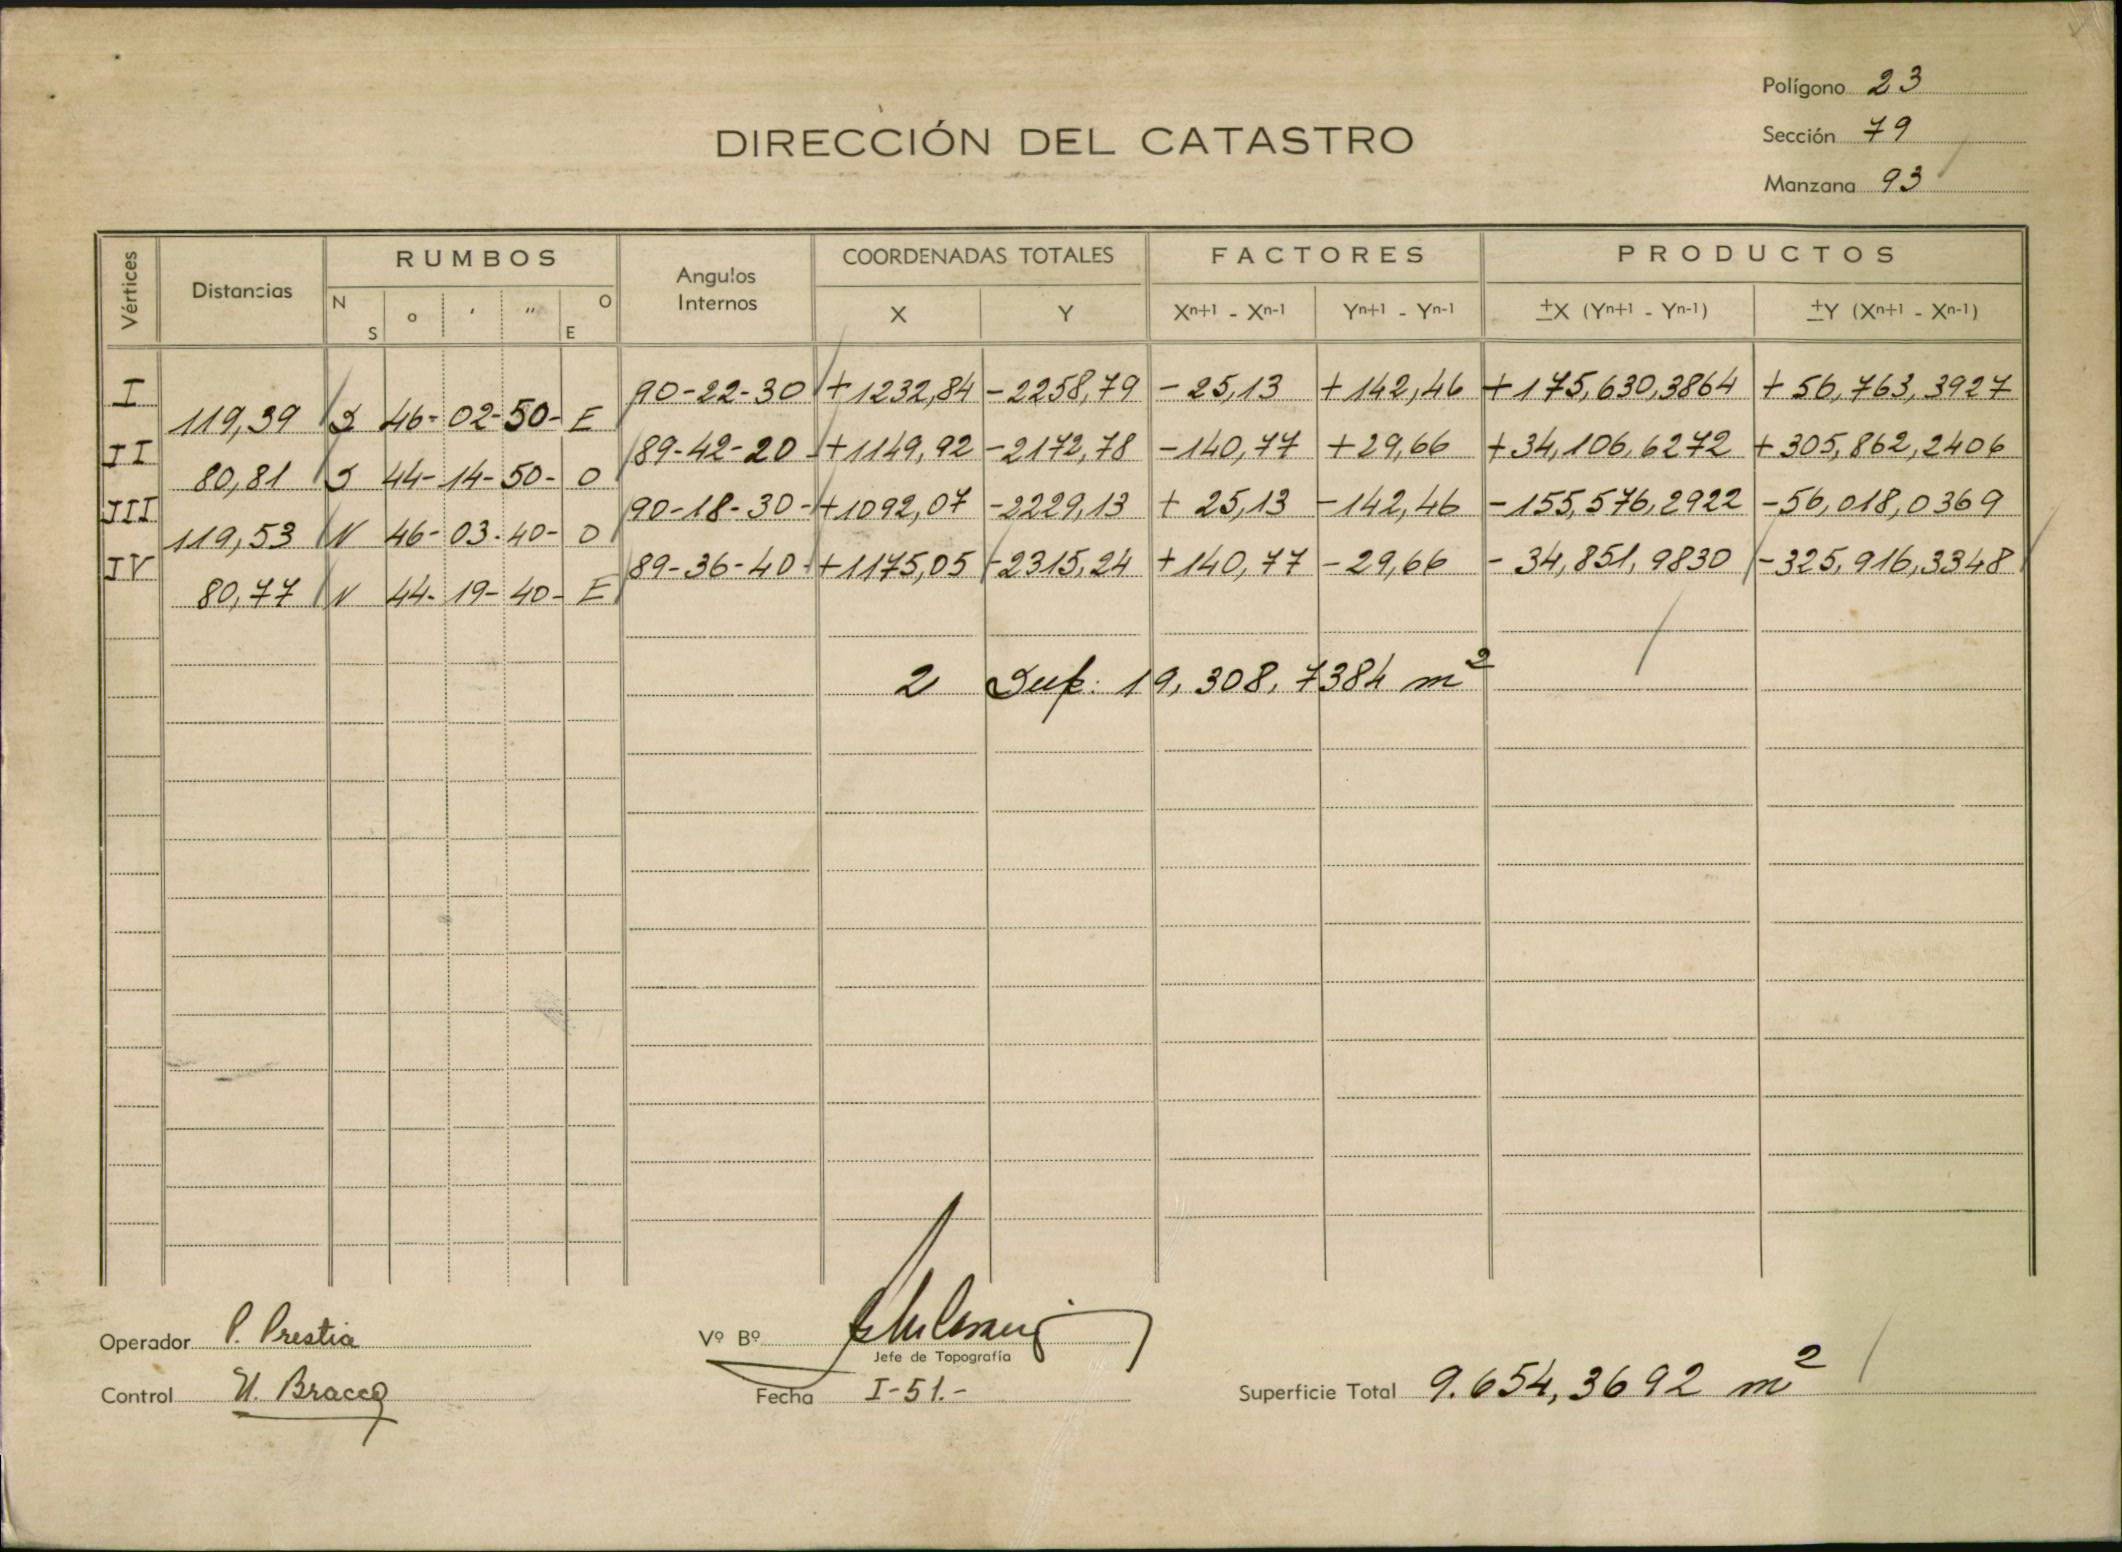 Polígono 23
DIRECCIÓN DEL CATASTRO
Sección 79
Manzana 93
Vértices Distancias RUMBOS Angulos Internos COORDENADAS TOTALES FACTORES PRODUCTOS
N S o ' " O E X Y Xn+1 - Xn-1 Yn+1 - Yn-1 ±X (Yn+1 - Yn-1) ±Y (Xn+1 - Xn-1)
I 90-22-30 +1232,84 -2258,79 -25,13 +142,46 +175,630,3864 +56,763,3927
119,39 S 46-02-50- E
II 89-42-20 +1149,92 -2172,78 -140,77 +29,66 +34,106,6272 +305,862,2406
80,81 S 44-14-50- O
III 90-18-30- +1092,07 -2229,13 +25,13 -142,46 -155,576,2922 -56,018,0369
119,53 N 46-03-40- O
IV 89-36-40- +1175,05 -2315,24 +140,77 -29,66 -34,851,9830 -325,916,3348
80,77 N 44-19-40- E
2 Sup. 19,308,7384 m2
Operador P. Prestia
Vº Bº
Jefe de Topografía
Control H. Bracco
Fecha I-51.-
Superficie Total 9.654,3692 m2